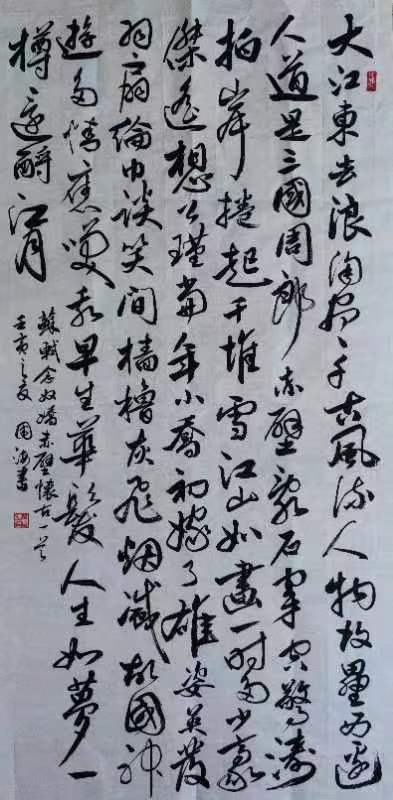 大江東去浪淘盡千古風流人物故壘西邊
人道是三國周郎赤壁亂石穿空驚濤
拍岸捲起千堆雪江山如畫一時多少豪
傑遙想公瑾當年小喬初嫁了雄姿英發
羽扇綸巾談笑間檣櫓灰飛烟滅故國神
遊多情應笑我早生華髮人生如夢一
樽還酹江月
蘇軾念奴嬌赤壁懷古一首
壬寅之夏國海書